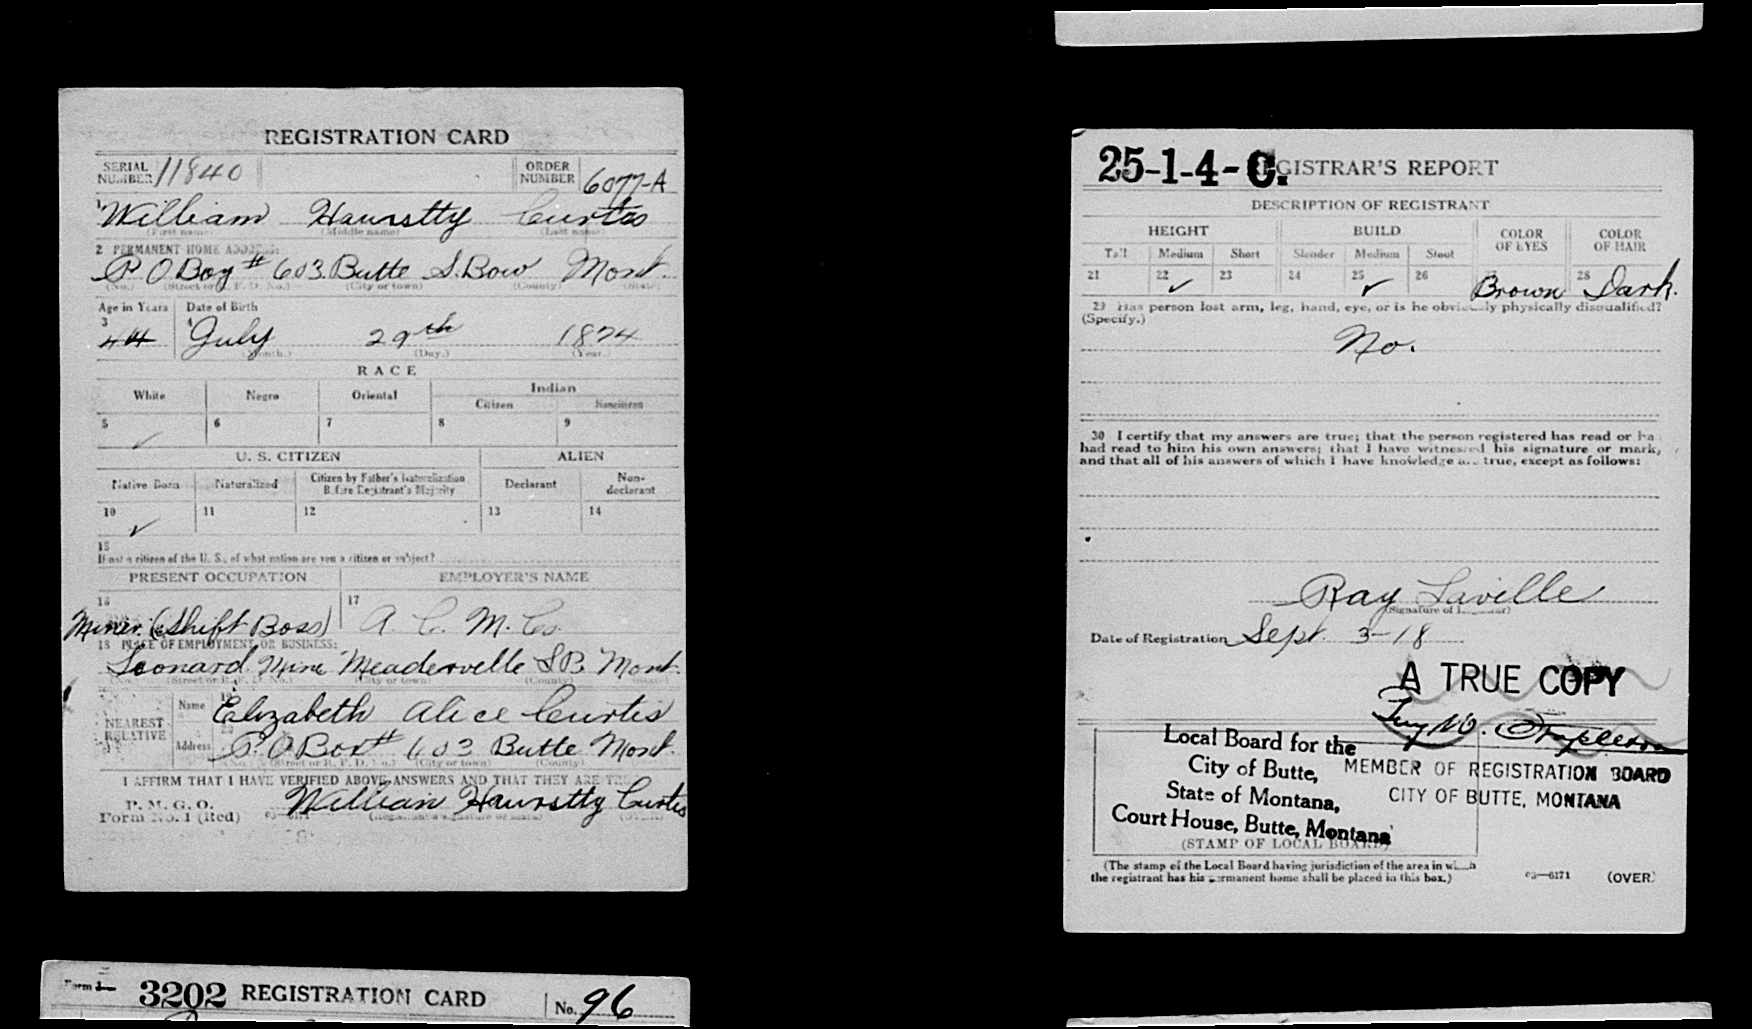 REGISTRATION CARD
SERIAL NUMBER 11840
ORDER NUMBER 6077-A
1 William Haurstty Curtis
(First name) (Middle name) (Last name)
2 PERMANENT HOME ADDRESS:
P. O Box # 603 Butte S. Bow Mont.
(No.) (Street or R. F. D. No.) (City or town) (County) (State)
Age in Years Date of Birth
3 44 4 July 29th 1874
(Month.) (Day.) (Year.)
RACE
White Negro Oriental Indian
Citizen Noncitizen
5 ✓ 6 7 8 9
U. S. CITIZEN ALIEN
Native Born Naturalized Citizen by Father's Naturalization Before Registrant's Majority Declarant Non-declarant
10 ✓ 11 12 13 14
15
If not a citizen of the U. S., of what nation are you a citizen or subject?
PRESENT OCCUPATION EMPLOYER'S NAME
16 Miner (Shift Boss) 17 A. C. M. Co.
18 PLACE OF EMPLOYMENT OR BUSINESS:
Leonard Mine Meaderville S.B. Mont.
(No.) (Street or R. F. D. No.) (City or town) (County) (State)
NEAREST RELATIVE Name 19 Elizabeth Alice Curtis
Address 20 P. O Box # 603 Butte Mont.
(No.) (Street or R. F. D. No.) (City or town) (County)
I AFFIRM THAT I HAVE VERIFIED ABOVE ANSWERS AND THAT THEY ARE
P. M. G. O.
Form No. 1 (Red) William Haurstty Curtis
Form 1 3202 REGISTRATION CARD No. 96
25-1-4-C. GISTRAR'S REPORT
DESCRIPTION OF REGISTRANT
HEIGHT BUILD COLOR OF EYES COLOR OF HAIR
Tall Medium Short Slender Medium Stout
21 22 ✓ 23 24 25 ✓ 26 Brown 28 Dark.
29 Has person lost arm, leg, hand, eye, or is he obviously physically disqualified?
(Specify.)
No.
30 I certify that my answers are true; that the person registered has read or ha
had read to him his own answers; that I have witnessed his signature or mark,
and that all of his answers of which I have knowledge are true, except as follows:
Ray Laville
(Signature of
Date of Registration Sept 3-18
A TRUE COPY
MEMBER OF REGISTRATION BOARD
CITY OF BUTTE, MONTANA
Local Board for the
City of Butte,
State of Montana,
Court House, Butte, Montana
(STAMP OF LOCAL BOARD)
(The stamp of the Local Board having jurisdiction of the area in which
the registrant has his permanent home shall be placed in this box.)
03—6171 (OVER)